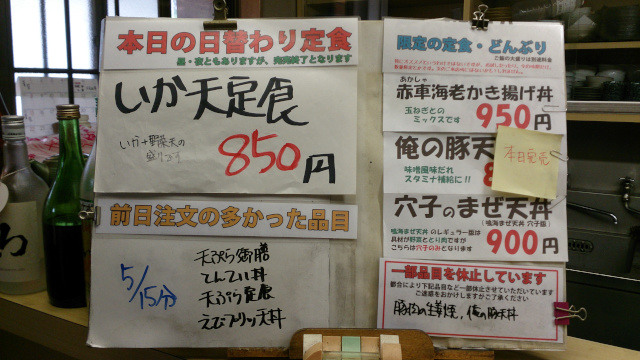 本日の日替わり定食
昼・夜ともありますが、肉肉終了となります
いか天定食
いか+野菜天の
盛りです
850円
前日注文の多かった品目
5/15分
天ぷら御膳
てんてい丼
天ぷら定食
えびプリッ天丼
限定の定食・どんぶり
ご飯の大盛りは別途料金
あかしゃ
赤車海老かき揚げ丼
玉ねぎとの
ミックスです
950円
俺の豚天
味噌風味だれ
スタミナ補給に!!
8
本日完売
穴子のまぜ天丼
(鳴海まぜ天丼 穴子版)
鳴海まぜ天丼 のレギュラー版は
具材が野菜ととり肉ですが
こちらは穴子のみとなります
900円
一部品目を休止しています
都合により下記品目など一部休止させていただいています
ご迷惑をおかけしますがご了承ください
豚肉の生姜焼、俺の豚天丼